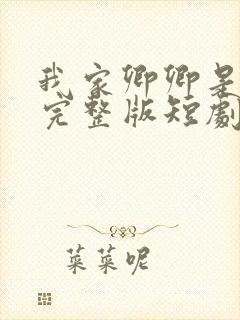 我家卿卿是
完整版短劇
菜菜呢